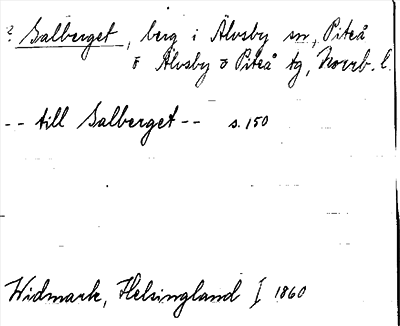 ? Galberget, berg i Älvsby sn, Piteå
o Älvsby o Piteå tg, Norrb. l.
-- till Galberget -- s. 150
Widmark, Helsingland I 1860